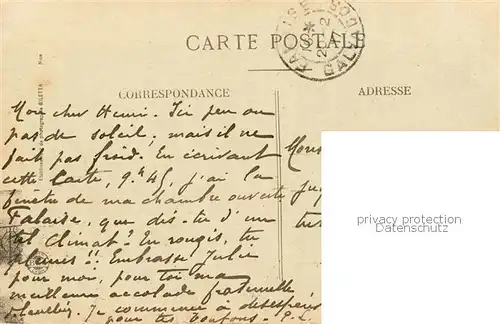 CARTE POSTALE
CORRESPONDANCE
ADRESSE
Mon cher Henri. Ici peu ou
pas de soleil, mais il ne
fait pas froid. En écrivant
cette Carte, 9h 45, j'ai la
fenêtre de ma chambre ouverte
Falaise, que dis-tu d'un
tel Climat? En rougis, tu
!! Embrasse Julie
pour moi, pour toi ma
meilleure accolade fraternelle
Je commence à désespérer
pour tes P.L.
privacy protection
Datenschutz